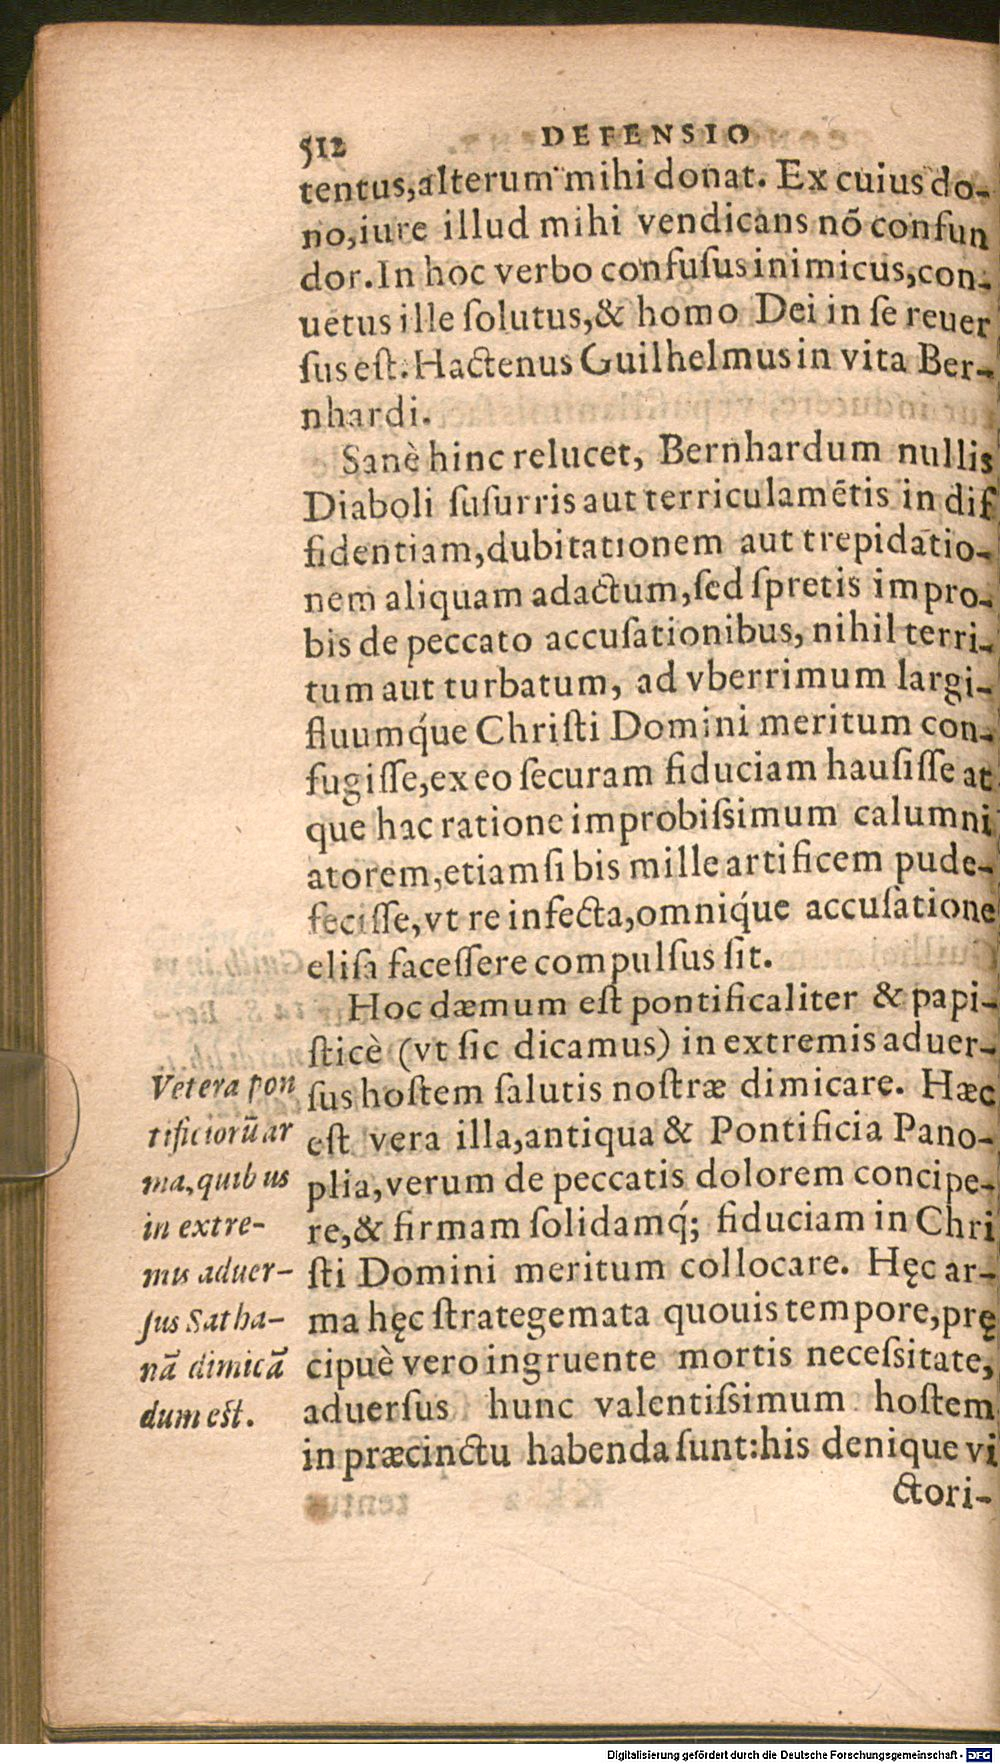 512 DEFENSIO
tentus,alterum mihi donat. Ex cuius do-
no,iure illud mihi vendicans nõ confun
dor. In hoc verbo confuſus inimicus,con-
uetus ille ſolutus,& homo Dei in ſe reuer
ſus eſt. Hactenus Guilhelmus in vita Ber-
nhardi.
Sanè hinc relucet, Bernhardum nullis
Diaboli ſuſurris aut terriculamẽtis in dif
fidentiam,dubitationem aut trepidatio-
nem aliquam adactum,ſed ſpretis impro-
bis de peccato accuſationibus, nihil terri-
tum aut turbatum, ad vberrimum largi-
fluumq́ue Chriſti Domini meritum con-
fugiſſe,ex eo ſecuram fiduciam hauſiſſe at
que hac ratione improbiſsimum calumni
atorem,etiamſi bis mille artificem pude-
feciſſe,vt re infecta,omniq́ue accuſatione
eliſa faceſſere compulſus ſit.
Hoc dæmum eſt pontificaliter & papi-
ſticè (vt ſic dicamus) in extremis aduer-
ſus hoſtem ſalutis noſtræ dimicare. Hæc
eſt vera illa,antiqua & Pontificia Pano-
plia,verum de peccatis dolorem concipe-
re,& firmam ſolidamq́; fiduciam in Chri
ſti Domini meritum collocare. Hęc ar-
ma hęc ſtrategemata quouis tempore,prę
cipuè vero ingruente mortis neceſsitate,
aduerſus hunc valentiſsimum hoſtem
in præcinctu habenda ſunt:his denique vi
ctori-
Vetera pon
tificiorũ ar
ma,quibus
in extre-
mis aduer-
ſus Satha-
nã dimicã
dum eſt.
Digitalisierung gefördert durch die Deutsche Forschungsgemeinschaft - DFG